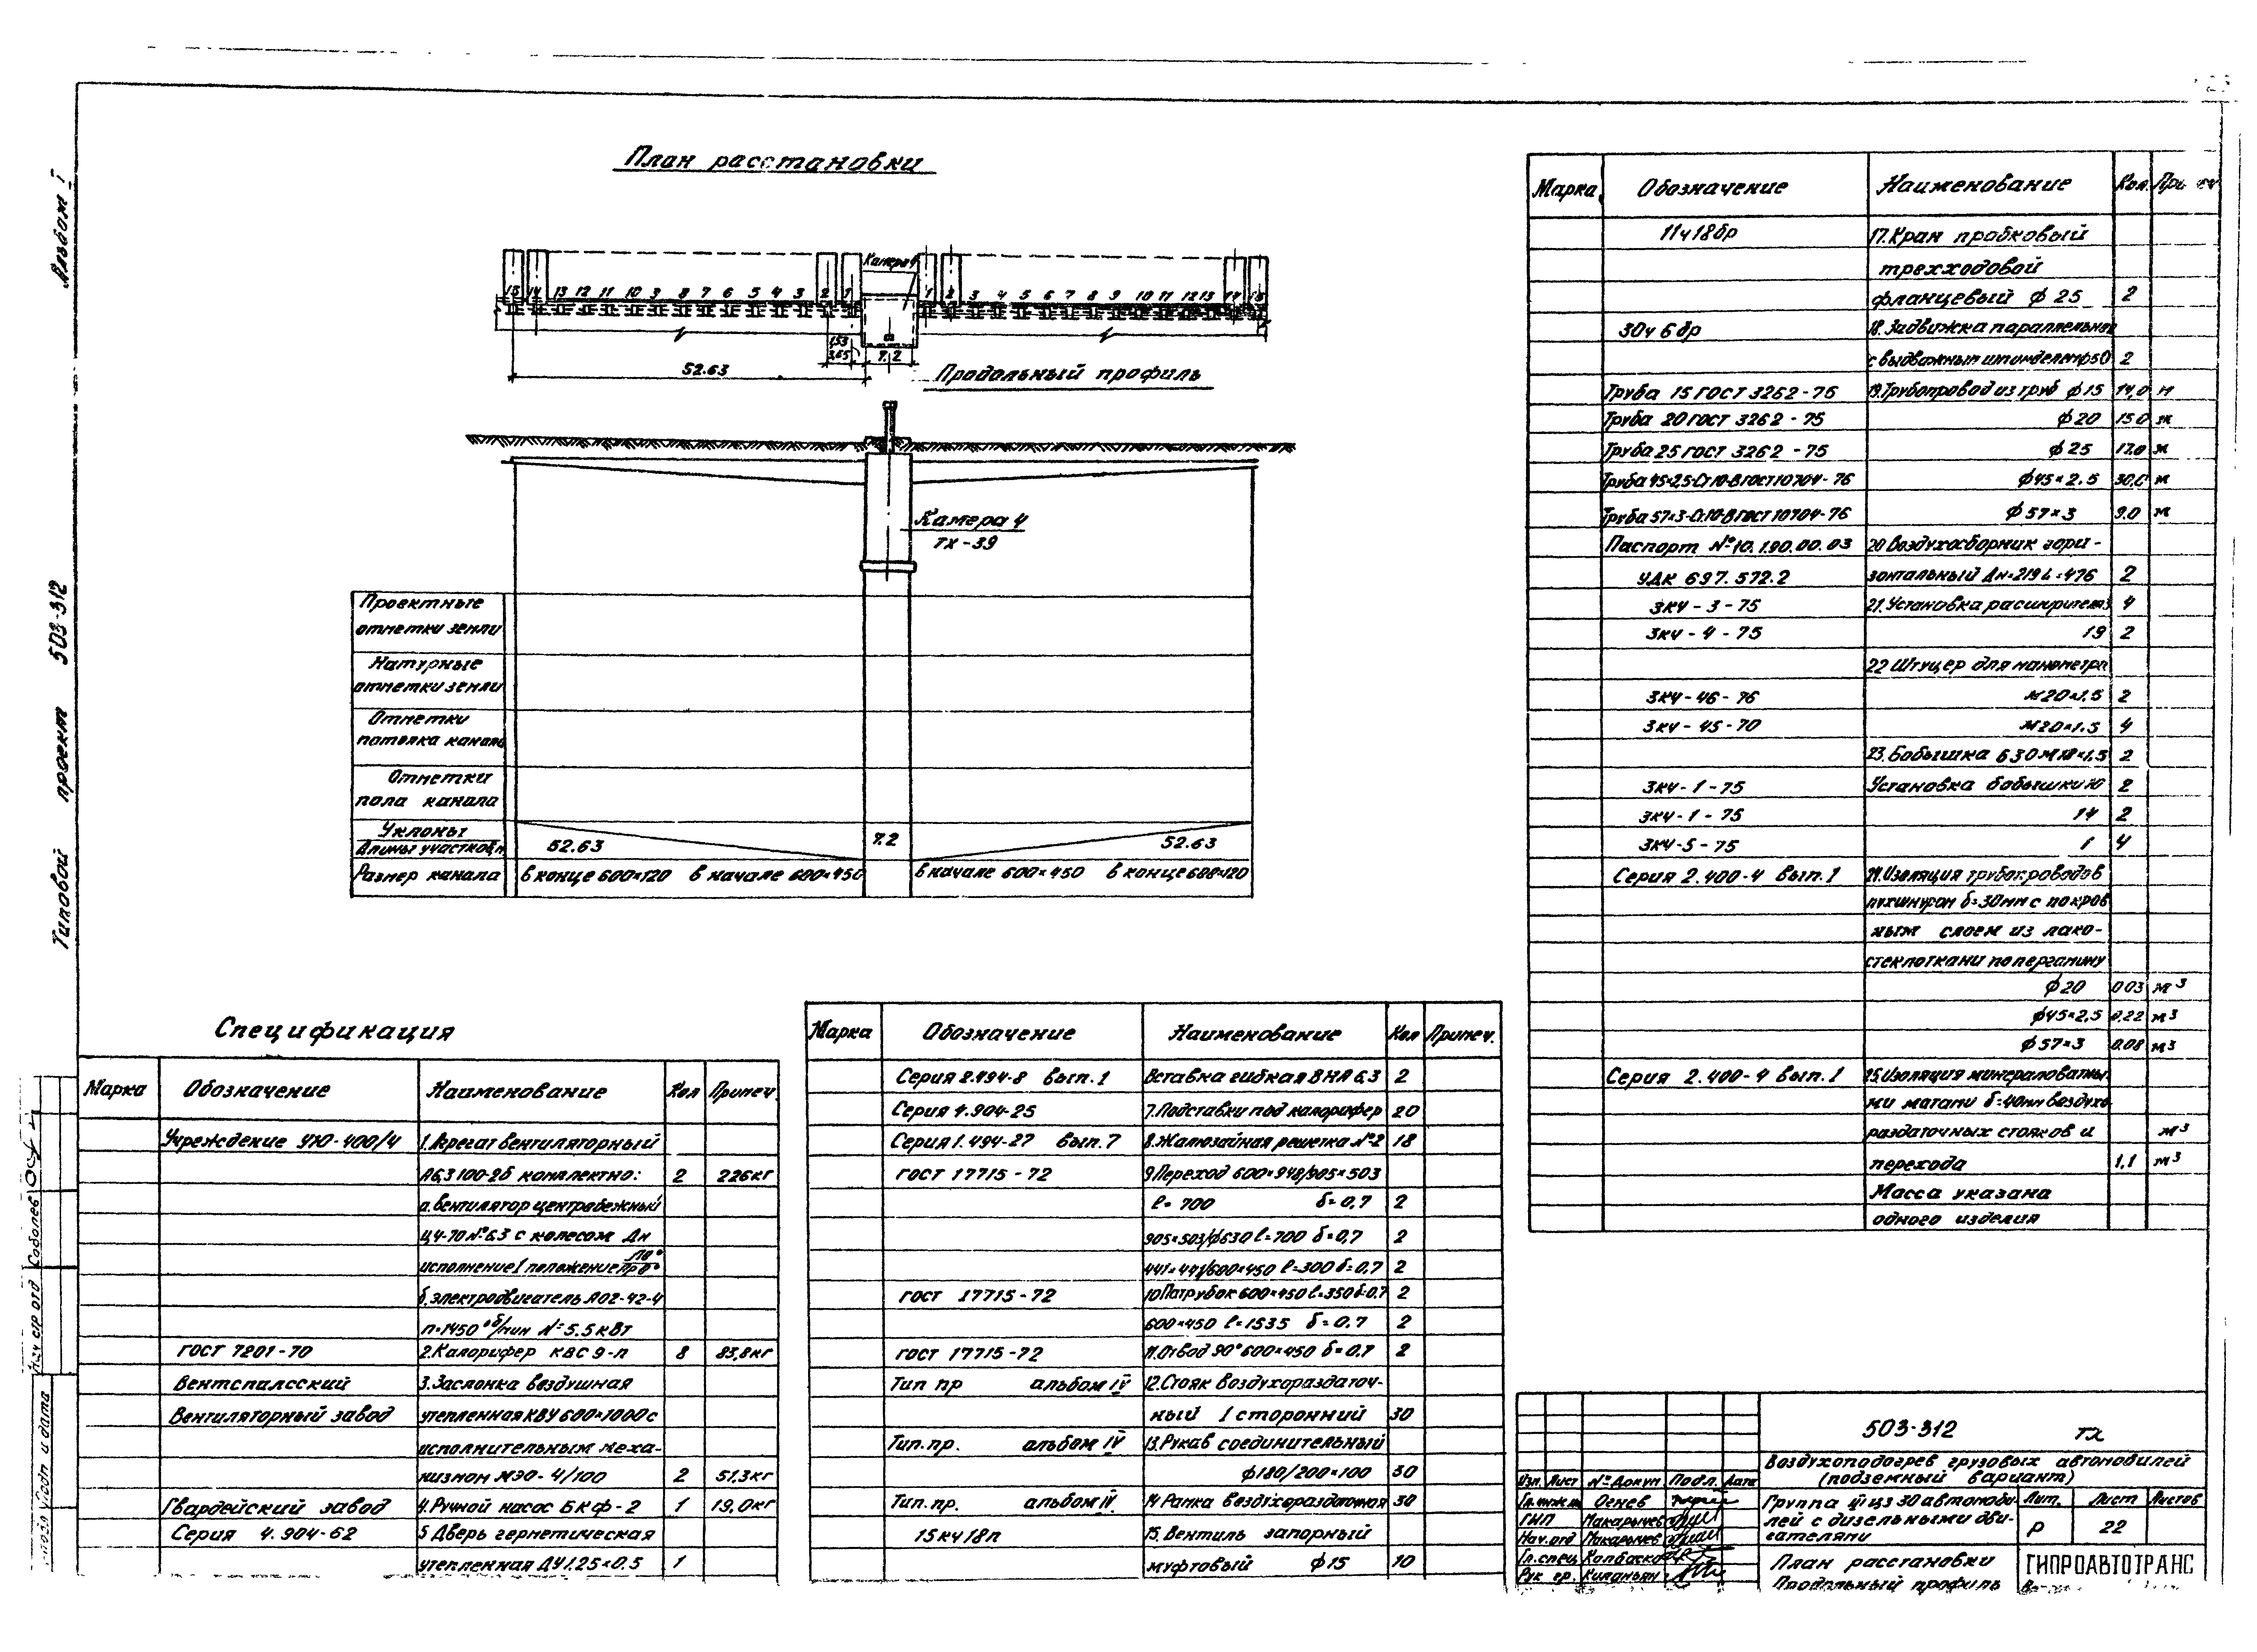 Альбом I
Типовой проект 503-312
План расстановки
Камера 4
15 14 13 12 11 10 9 8 7 6 5 4 3 2 1
1 2 3 4 5 6 7 8 9 10 11 12 13 14 15
153
3,65
7.2
52.63
Продольный профиль
Камера 4
ТХ-39
Проектные
отметки земли
Натурные
отметки земли
Отметки
потолка канала
Отметки
пола канала
Уклоны
Длины участков, м
52.63
7.2
52.63
Размер канала
в конце 600×120
в начале 600×450
в начале 600×450
в конце 600×120
Спецификация
Марка Обозначение Наименование Кол Примеч
Учреждение УЮ-400/4 1.Агрегат вентиляторный
А6,3 100-2б комплектно: 2 226кг
а.вентилятор центробежный
Ц4-70 №6,3 с колесом Дн
исполнение 1 положение
б.электродвигатель АО2-42-4
n=1450 об/мин N=5.5 кВт
ГОСТ 7201-70 2.Калорифер КВС 9-п 8 83,8кг
Вентспилсский 3.Заслонка воздушная
Вентиляторный завод утепленная КВУ 600×1000 с
исполнительным меха-
низмом МЭО-4/100 2 51,3кг
Гвардейский завод 4.Ручной насос БКФ-2 1 19,0кг
Серия 4.904-62 5 Дверь герметическая
утепленная ДУ 1.25×0.5 1
Марка Обозначение Наименование Кол Примеч.
Серия 2.494-8 вып.1 Вставка гибкая ВНА 6,3 2
Серия 4.904-25 7.Подставки под калорифер 20
Серия 1.494-27 вып.7 8.Жалюзийная решетка №2 18
ГОСТ 17715-72 9.Переход 600×948/905×503
ℓ=700 δ=0,7 2
905×503/ф630 ℓ=700 δ=0,7 2
441×441/600×450 ℓ=300 δ=0,7 2
ГОСТ 17715-72 10Патрубок 600×450 ℓ=350 δ=0,7 2
600×450 ℓ=1535 δ=0,7 2
ГОСТ 17715-72 11.Отвод 90° 600×450 δ=0,7 2
Тип пр альбом IV 12.Стояк воздухораздаточ-
ный 1 сторонний 30
Тип.пр. альбом IV 13.Рукав соединительный
ф180/200×100 30
Тип.пр. альбом IV. 14 Рамка воздухораздаточная 30
15кч18п 15.Вентиль запорный
муфтовый ф15 10
Марка Обозначение Наименование Кол.
11ч18бр 17.Кран пробковый
трехходовой
фланцевый ф25 2
30ч6бр 18.Задвижка параллельная
с выдвижным шпинделем ф50 2
Труба 15 ГОСТ 3262-76 19.Трубопровод из труб ф15 14,0 м
Труба 20 ГОСТ 3262-75 ф20 15.0 м
Труба 25 ГОСТ 3262-75 ф25 17.0 м
Труба 45×2,5-Ст10-В ГОСТ 10704-76 ф45×2.5 30,0 м
Труба 57×3-Ст.10-В ГОСТ 10704-76 ф57×3 9.0 м
Паспорт №10.190.00.03 20 Воздухосборник гори-
УДК 697.572.2 зонтальный Дн=219 L=476 2
ЗКЧ-3-75 21.Установка расширителя 4
ЗКЧ-4-75 19 2
22 Штуцер для манометра
ЗКЧ-46-76 М20×1.5 2
ЗКЧ-45-70 М20×1.5 4
23.Бобышка 2
ЗКЧ-1-75 Установка бобышки 10 2
ЗКЧ-1-75 14 2
ЗКЧ-5-75 1 4
Серия 2.400-4 вып.1 24.Изоляция трубопроводов
пухшнуром δ=30мм с покров
ным слоем из лако-
стеклоткани по пергамину
ф20 0.03 м³
ф45×2,5 0,22 м³
ф57×3 0.08 м³
Серия 2.400-4 вып.1 25.Изоляция минераловатны-
ми матами δ=40мм воздухо
раздаточных стояков и м³
перехода 1,1 м³
Масса указана
одного изделия
503-312 ТХ
Воздухоподогрев грузовых автомобилей
(подземный вариант)
Изм. Лист №Докум Подп. Дата
Гл.инж.ин Огнев
ГИП Макарычев
Нач.отд Макарычев
Гл.спец
Рук гр.
Группа III из 30 автомоби-
лей с дизельными дви-
гателями
Лит. Лист Листов
Р 22
План расстановки
Продольный профиль
ГИПРОАВТОТРАНС
Нач стр отд Соболев
Подп и дата